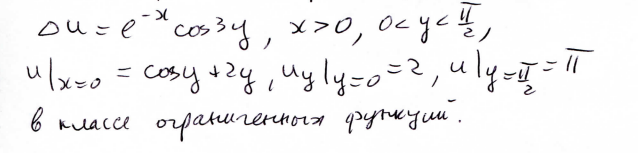 Δu = e^{-x} cos3y, x>0, 0<y<π/2,
u|_{x=0} = cosy+2y, u_y|_{y=0}=2, u|_{y=π/2}=π
в классе ограниченных функций.